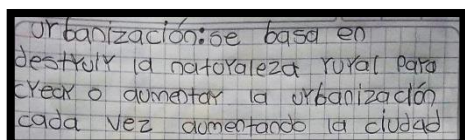 urbanización: se basa en
destruir la naturaleza rural para
crear o aumentar la urbanización
cada vez aumentando la ciudad